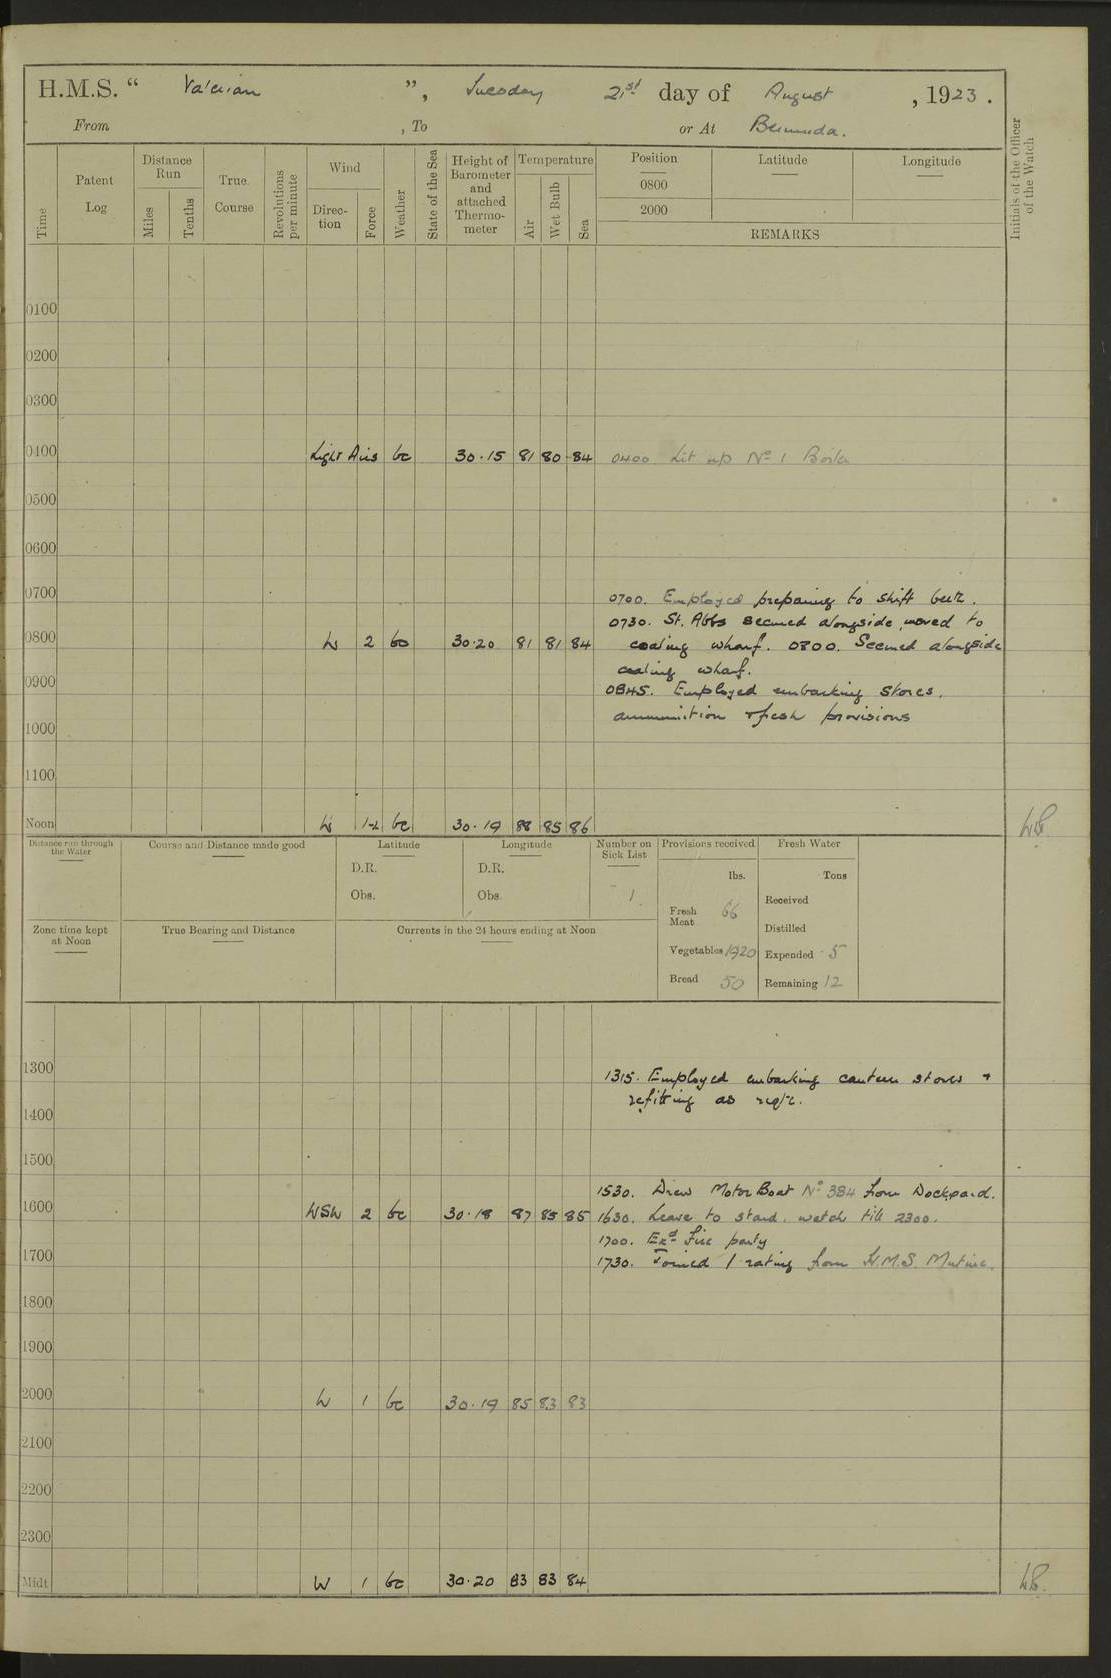 H.M.S. “ Valerian ”, Tuesday 21st day of August , 1923 .
From , To or At Bermuda.
Time
Patent Log
Distance Run
Miles
Tenths
True Course
Revolutions per minute
Wind
Direc-tion
Force
Weather
State of the Sea
Height of Barometer and attached Thermo-meter
Temperature
Air
Wet Bulb
Sea
Position
0800
2000
Latitude
Longitude
REMARKS
Initials of the Officer of the Watch
0100
0200
0300
0100 Light Airs bc 30.15 81 80 84 0400 Lit up No 1 Boiler
0500
0600
0700 0700. Employed preparing to shift berth.
0730. St. Abbs secured alongside, moved to
0800 W 2 bc 30.20 81 81 84 coaling wharf. 0800. Secured alongside
coaling wharf.
0900 0845. Employed embarking stores,
ammunition & fresh provisions
1000
1100
Noon W 1-2 bc 30.19 88 85 86
Distance run through the Water
Course and Distance made good
Latitude
D.R.
Obs.
Longitude
D.R.
Obs.
Number on Sick List
1
Provisions received
lbs.
Fresh Meat 66
Vegetables 1920
Bread 50
Fresh Water
Tons
Received
Distilled
Expended 5
Remaining 12
Zone time kept at Noon
True Bearing and Distance
Currents in the 24 hours ending at Noon
1300 1315. Employed embarking canteen stores +
refitting as req/te.
1400
1500
1530. Drew Motor Boat No 384 from Dockyard.
1600 WSW 2 bc 30.18 87 85 85 1630. Leave to starbd. watch till 2300.
1700. Exd Fire party
1700 1730. Joined 1 rating from H.M.S. Mutine.
1800
1900
2000 W 1 bc 30.19 85 83 83
2100
2200
2300
Midt W 1 bc 30.20 83 83 84